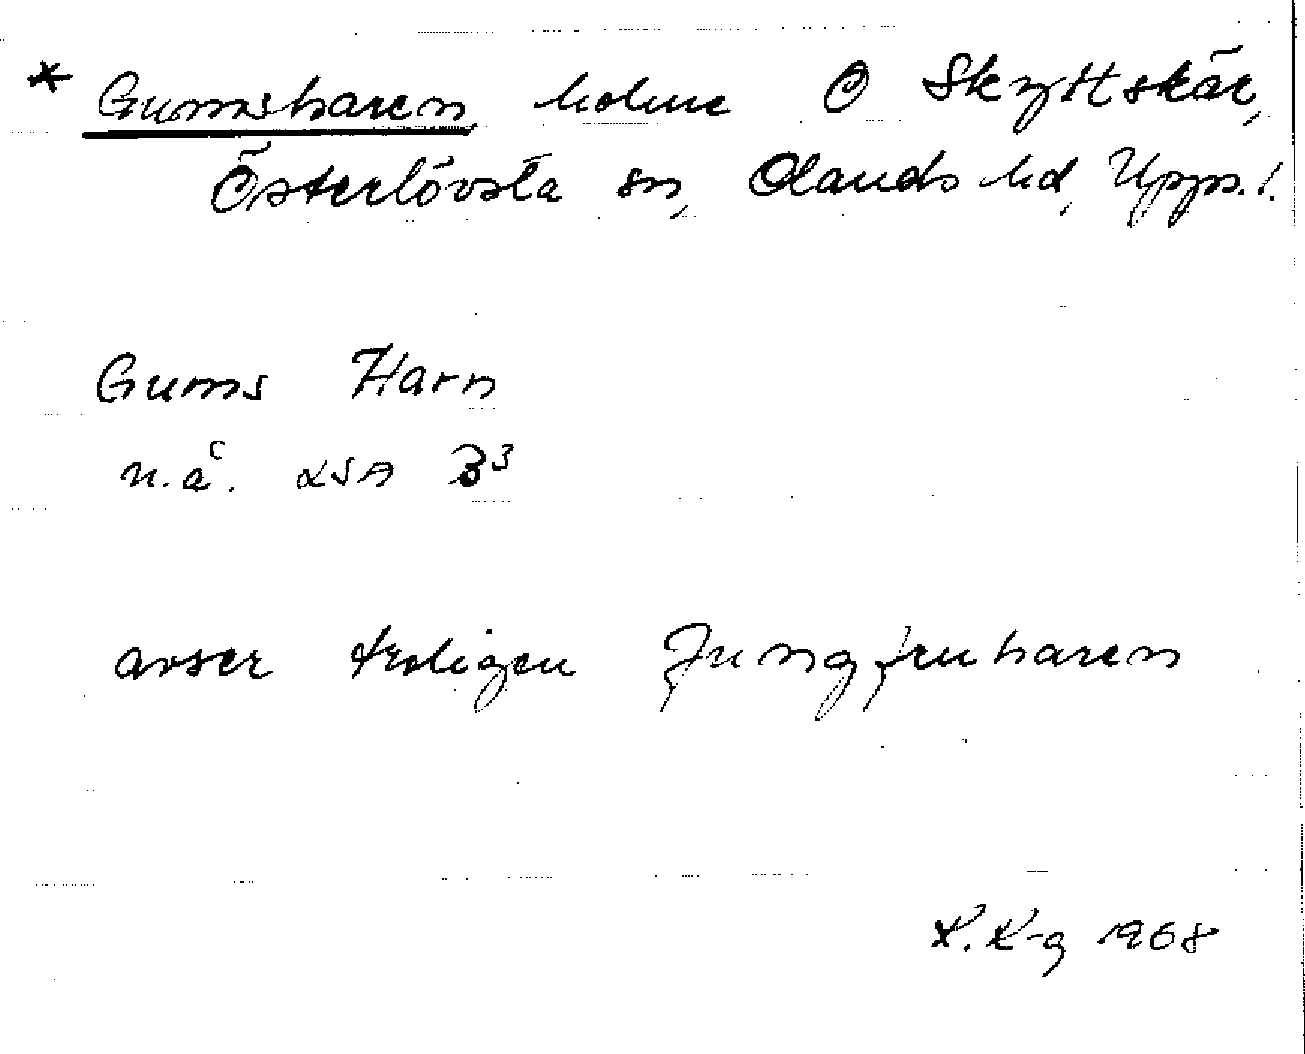 * Gumsharen, holme O Skyttskär,
Österlövsta sn, Olands hd, Upps. l.
Gums Harn
n.ä. LSA B3
avser troligen Jungfruharen
K. K-g 1968